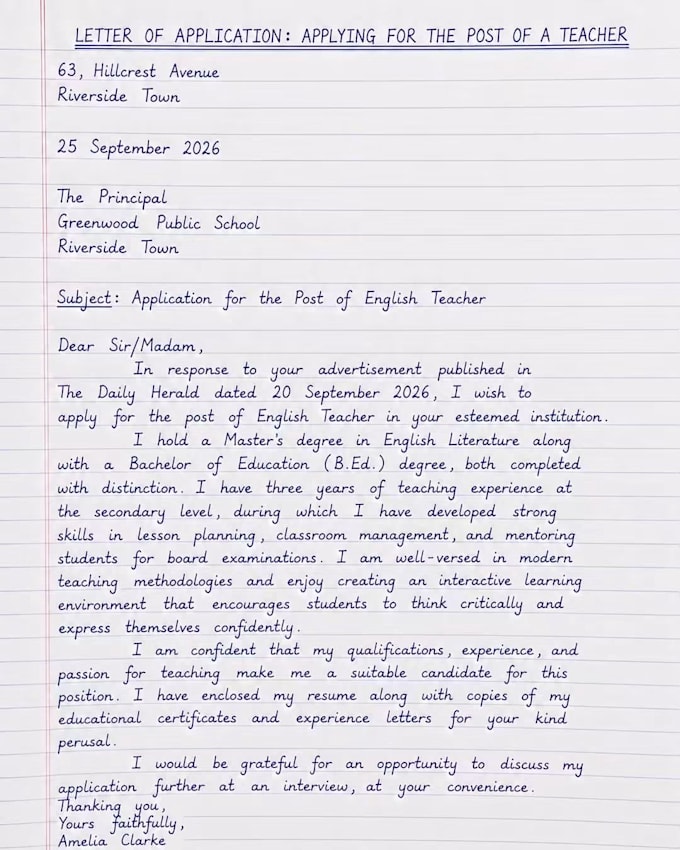 LETTER OF APPLICATION: APPLYING FOR THE POST OF A TEACHER
63, Hillcrest Avenue
Riverside Town
25 September 2026
The Principal
Greenwood Public School
Riverside Town
Subject: Application for the Post of English Teacher
Dear Sir/Madam,
In response to your advertisement published in
The Daily Herald dated 20 September 2026, I wish to
apply for the post of English Teacher in your esteemed institution.
I hold a Master's degree in English Literature along
with a Bachelor of Education (B.Ed.) degree, both completed
with distinction. I have three years of teaching experience at
the secondary level, during which I have developed strong
skills in lesson planning, classroom management, and mentoring
students for board examinations. I am well-versed in modern
teaching methodologies and enjoy creating an interactive learning
environment that encourages students to think critically and
express themselves confidently.
I am confident that my qualifications, experience, and
passion for teaching make me a suitable candidate for this
position. I have enclosed my resume along with copies of my
educational certificates and experience letters for your kind
perusal.
I would be grateful for an opportunity to discuss my
application further at an interview, at your convenience.
Thanking you,
Yours faithfully,
Amelia Clarke